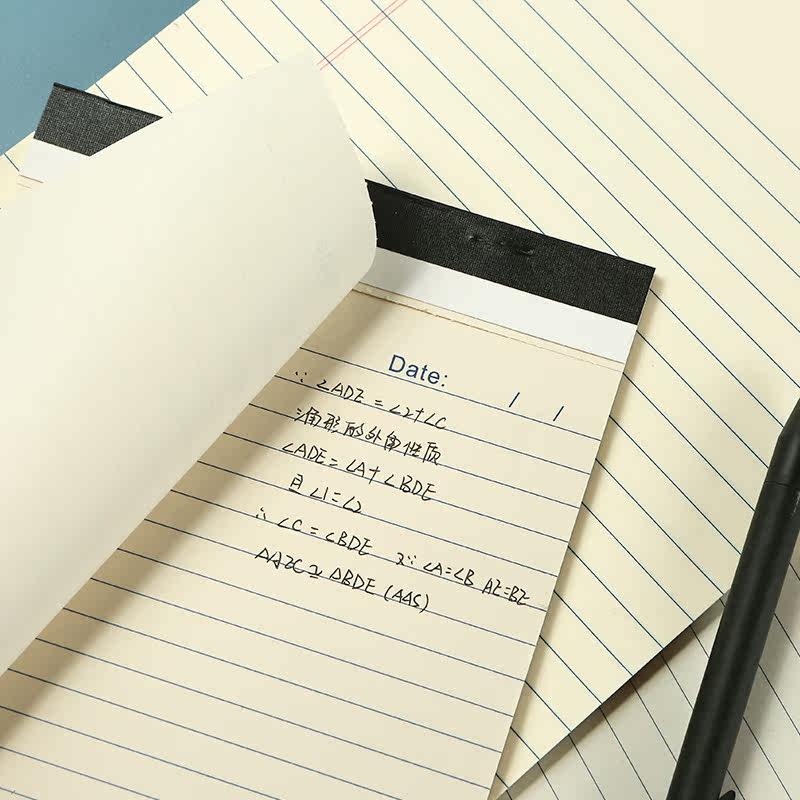 Date: / /
∵ ∠ADE = ∠2+∠C
三角形的外角性质
∠ADE = ∠A+∠BDE
且∠1=∠2
∴ ∠C = ∠BDE 又∵ ∠A=∠B AE=BE
△AEC≌△BDE (AAS)